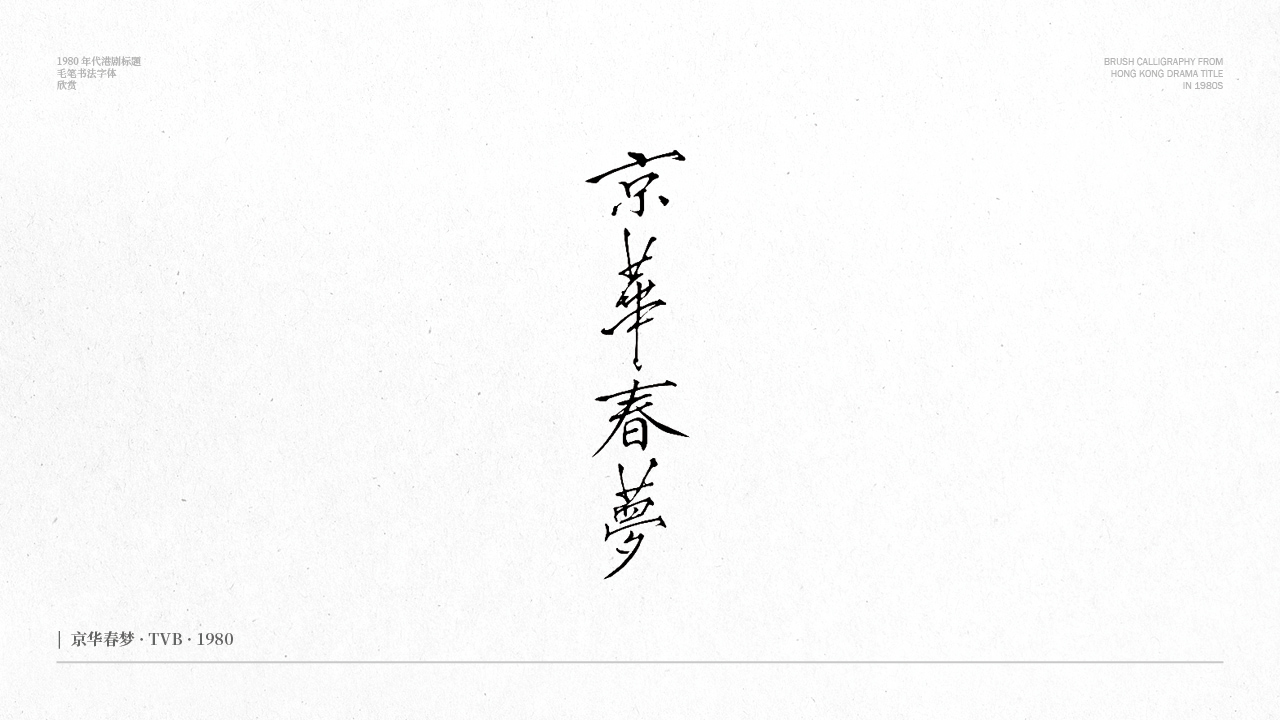 1980 年代港剧标题
毛笔书法字体
欣赏
BRUSH CALLIGRAPHY FROM
HONG KONG DRAMA TITLE
IN 1980S
京
華
春
夢
| 京华春梦 · TVB · 1980